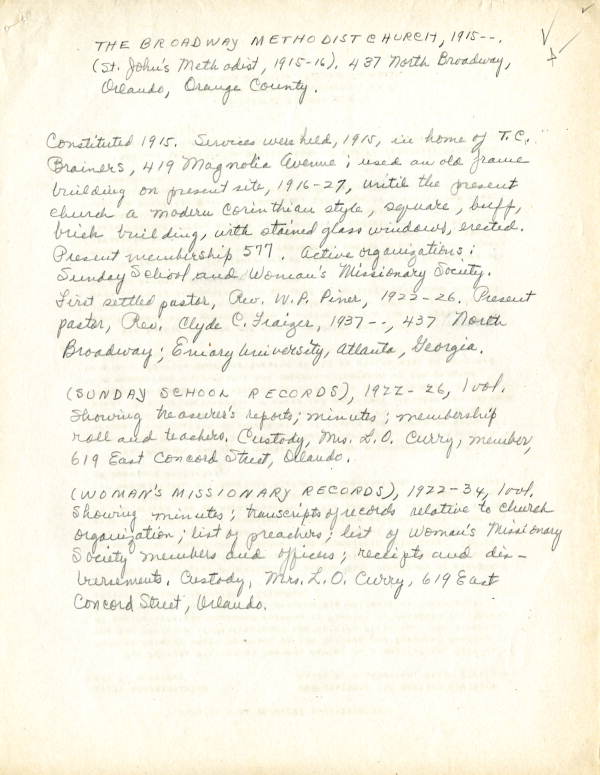 THE BROADWAY METHODIST CHURCH, 1915--.
(St. John's Methodist, 1915-16). 437 North Broadway,
Orlando, Orange County.
Constituted 1915. Services were held, 1915, in home of T.C.
Brainers, 419 Magnolia Avenue; used an old frame
building on present site, 1916-27, until the present
church a modern Corinthian style, square, buff,
brick building, with stained glass windows, erected.
Present membership 577. Active organizations:
Sunday School and Woman's Missionary Society.
First settled pastor, Rev. W.P. Piner, 1922-26. Present
pastor, Rev. Clyde C. Fraizer, 1937--, 437 North
Broadway; University, Atlanta, Georgia.
(SUNDAY SCHOOL RECORDS), 1922-26, 1 vol.
Showing treasurer's reports; minutes; membership
roll and teachers. Custody, Mrs. L.O. Curry, member,
619 East Concord Street, Orlando.
(WOMAN'S MISSIONARY RECORDS), 1922-34, 1 vol.
Showing minutes; transcripts of records relative to church
organization; list of preachers; list of Woman's Missionary
Society members and officers; receipts and dis-
bursements. Custody, Mrs. L.O. Curry, 619 East
Concord Street, Orlando.